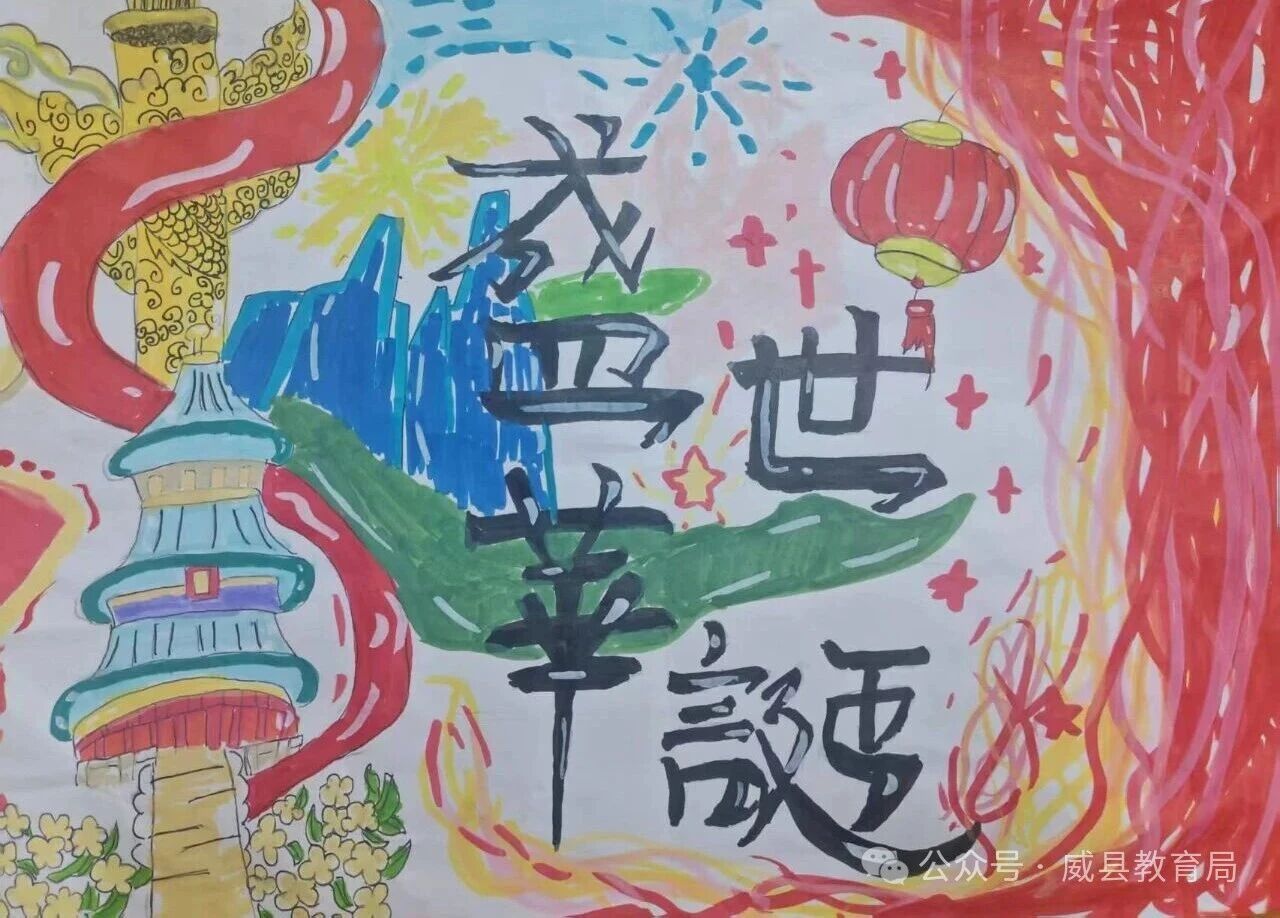 盛世
華誕
公众号·威县教育局